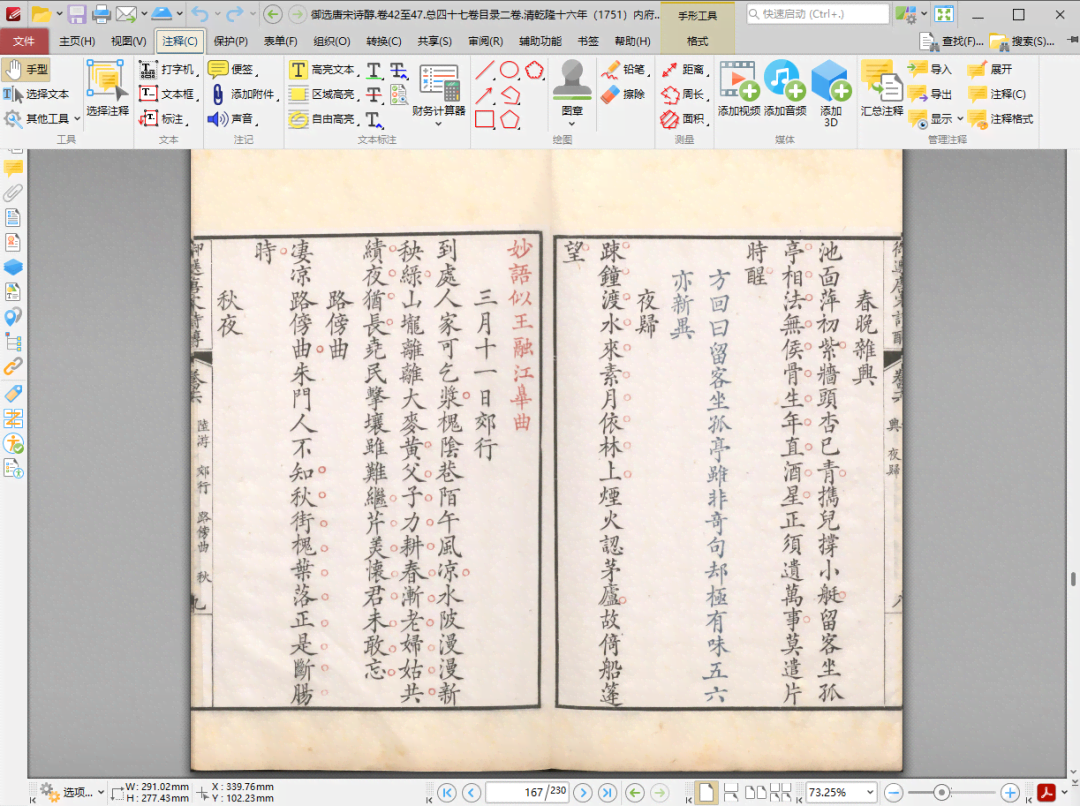 御选唐宋诗醇.卷42至47.总四十七卷目录二卷.清乾隆十六年（1751）内府..
手形工具
快速启动 (Ctrl+.)
文件
主页(H)
视图(V)
注释(C)
保护(P)
表单(F)
组织(O)
转换(C)
共享(S)
审阅(R)
辅助功能
书签
帮助(H)
格式
查找(F)...
搜索(S)...
手型
选择文本
其他工具
选择注释
打字机
文本框
标注
便签
添加附件
声音
高亮文本
区域高亮
自由高亮
财务计算器
图章
铅笔
擦除
距离
周长
面积
添加视频
添加音频
添加
3D
汇总注释
导入
导出
显示
展开
注释(C)
注释格式
工具
文本
注记
文本标注
绘图
测量
媒体
管理注释
春晚雜興
池面萍初紫牆頭杏已青攜兒撐小艇留客坐孤
亭相法無侯骨生年直酒星正須遺萬事莫遣片
時醒
方回曰留客坐孤亭雖非奇句却極有味五六
亦新異
夜歸
踈鐘渡水來素月依林上煙火認茅廬故倚船篷
望
妙語似王融江皋曲
三月十一日郊行
到處人家可乞漿槐陰巷陌午風凉水陂漫漫新
秧綠山壠離離大麥黃父子力耕春漸老婦姑共
績夜猶長堯民擊壤雖難繼芹美懷君未敢忘
路傍曲
凄凉路傍曲朱門人不知秋街槐葉落正是斷腸
時
秋夜
陸游
郊行
路傍曲
秋
九
夜歸
八
选项...
W: 291.02mm
H: 277.43mm
X: 339.76mm
Y: 102.23mm
167/230
73.25%